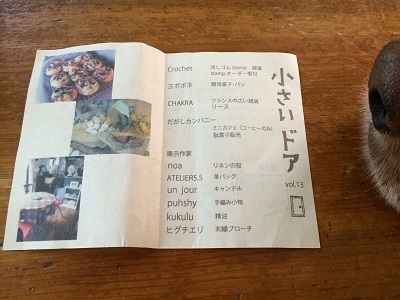 小さいドア
vol.13
Crochet 消しゴム stamp 雑貨
stamp オーダー受付
ヨポポネ 酵母菓子・パン
CHAKRA フランスの古い雑貨
リース
だがしカンパニー
ミニカフェ(コーヒーのみ)
駄菓子販売
展示作家
noa リネンの服
ATELIERS.5 革バッグ
un jour キャンドル
puhshy 手編み小物
kukulu 精油
ヒグチエリ 刺繍ブローチ